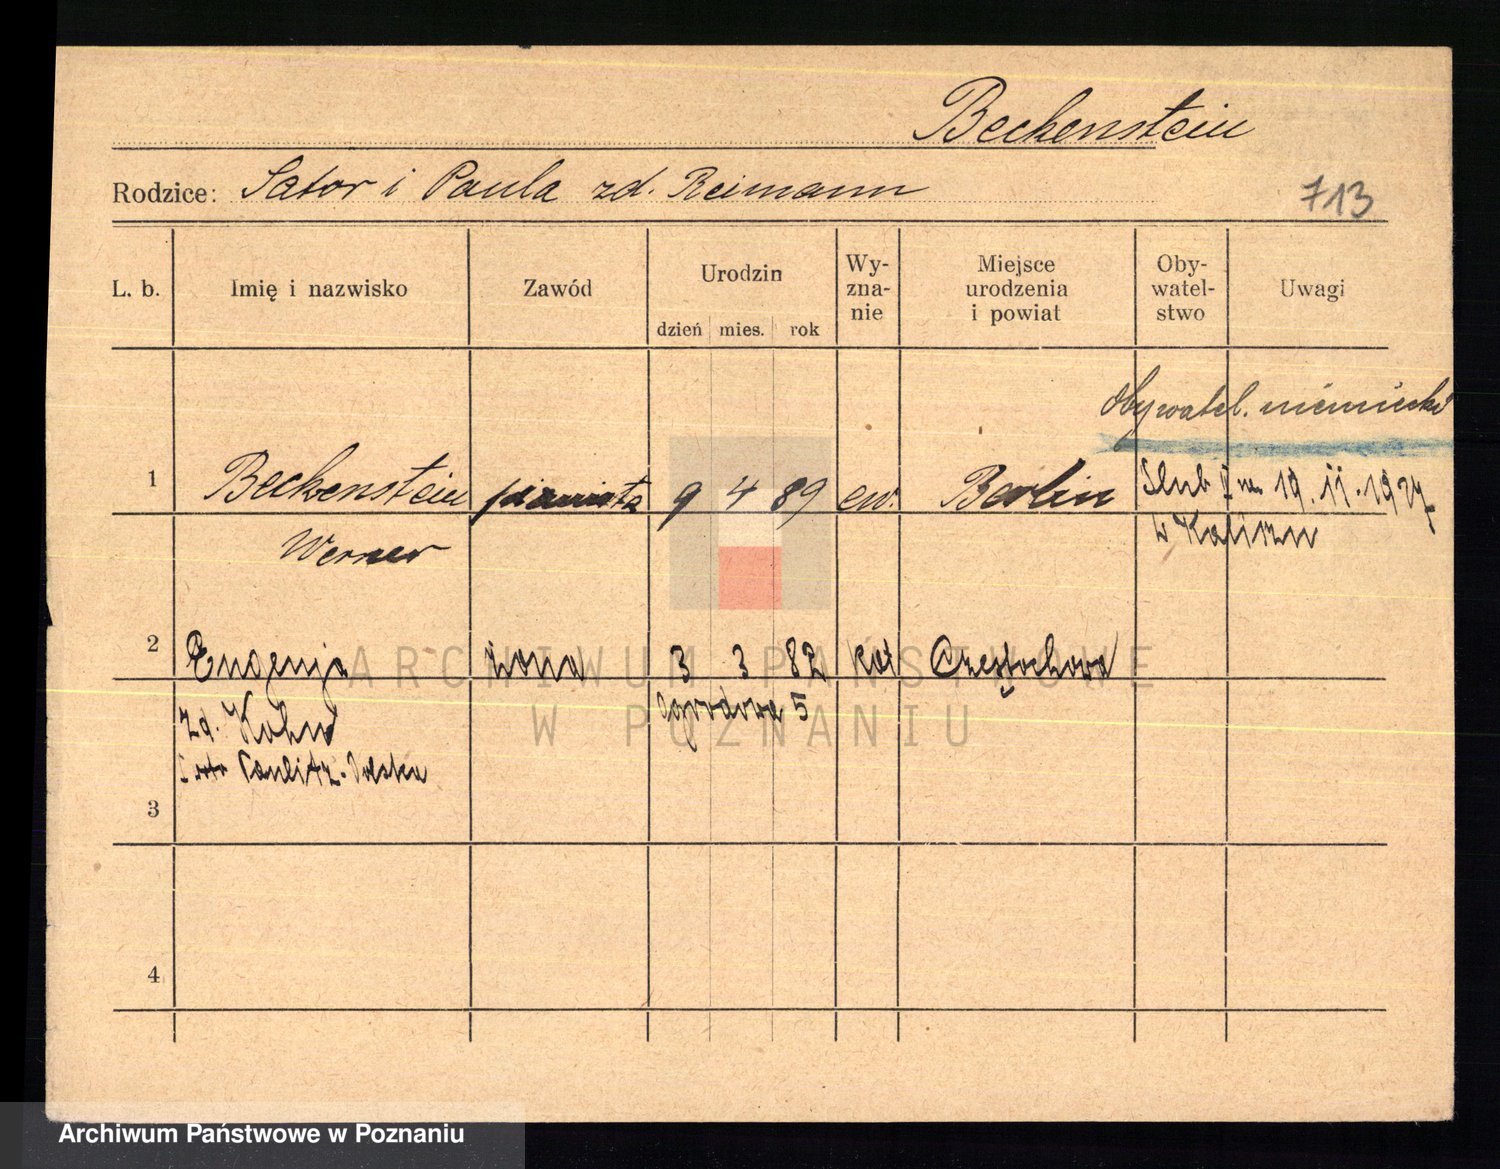 Beckenstein
Rodzice: Sator i Paula zd. Reimann
713
L. b. Imię i nazwisko Zawód Urodzin dzień mies. rok Wy-zna-nie Miejsce urodzenia i powiat Oby-watel-stwo Uwagi
Obywatel. niemiecki
1 Beckenstein pianista 9 4 89 ew. Berlin Slub 19.11.1927
Werner w Kaliszu
2 Eugenja żona 3 3 82 kat Częstochowa
zd. Kohn Ogrodowa 5
3
4
ARCHIWUM PAŃSTWOWE
W POZNANIU
Archiwum Państwowe w Poznaniu